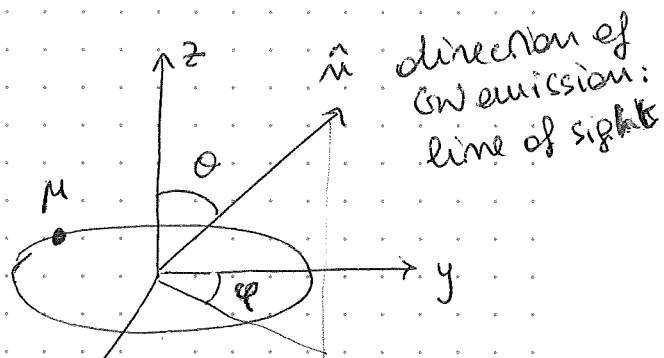 z
n̂
direction of
GW emission:
line of sight
μ
θ
y
φ